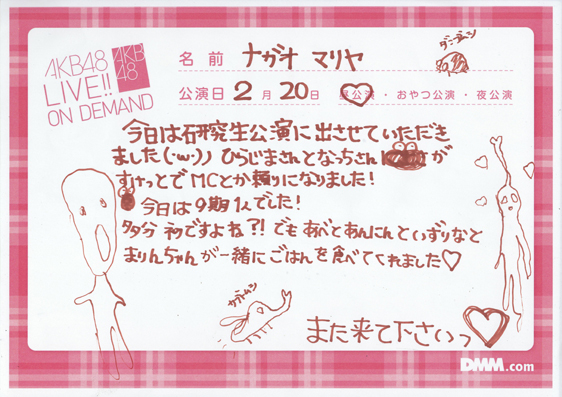 AKB48
LIVE!!
ON DEMAND
AKB
48
名前 ナガオ マリヤ
ダンゴムシ
公演日 2月20日 昼公演・おやつ公演・夜公演
今日は研究生公演に出させていただき
ました(・ω・)ノ ひらじまさんとなっちさん が
すけっとで MCとか頼りになりました!
今日は9期1人でした!
多分 初ですよね?! でも あべとあんにんといずりなと
まりんちゃんが一緒にごはんを食べてくれました♡
また来て下さいっ♡
DMM.com